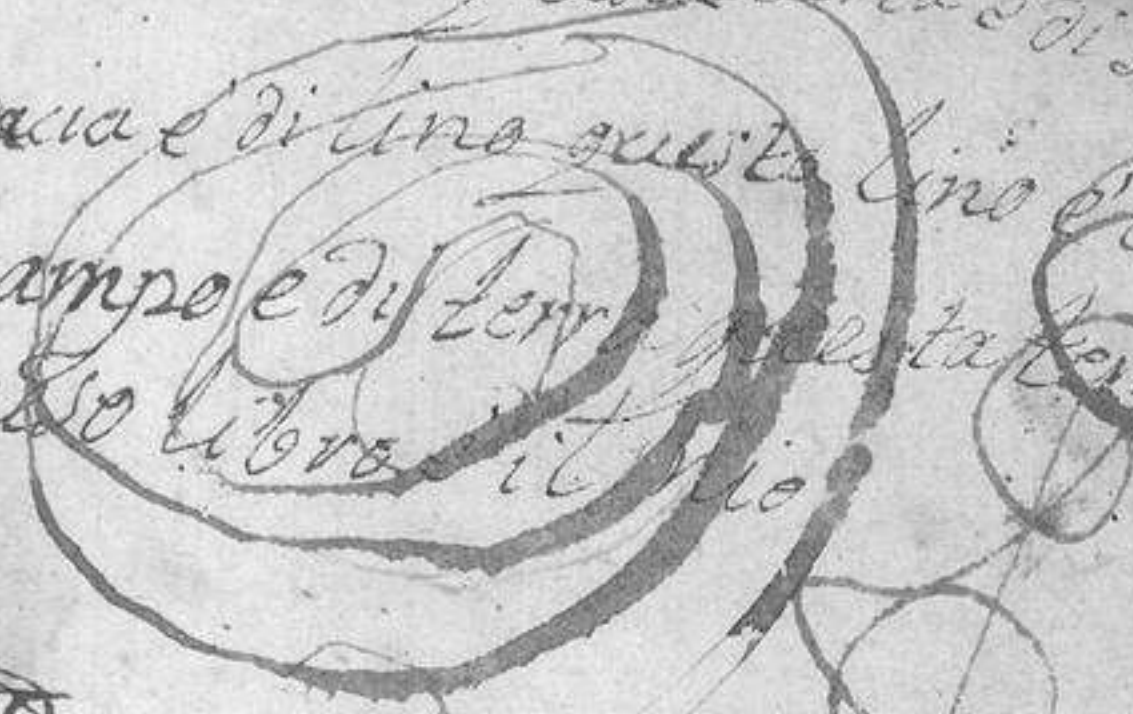 di
acia e di lino questo lino e
ampo e di terra questa ter
so libro e il mio